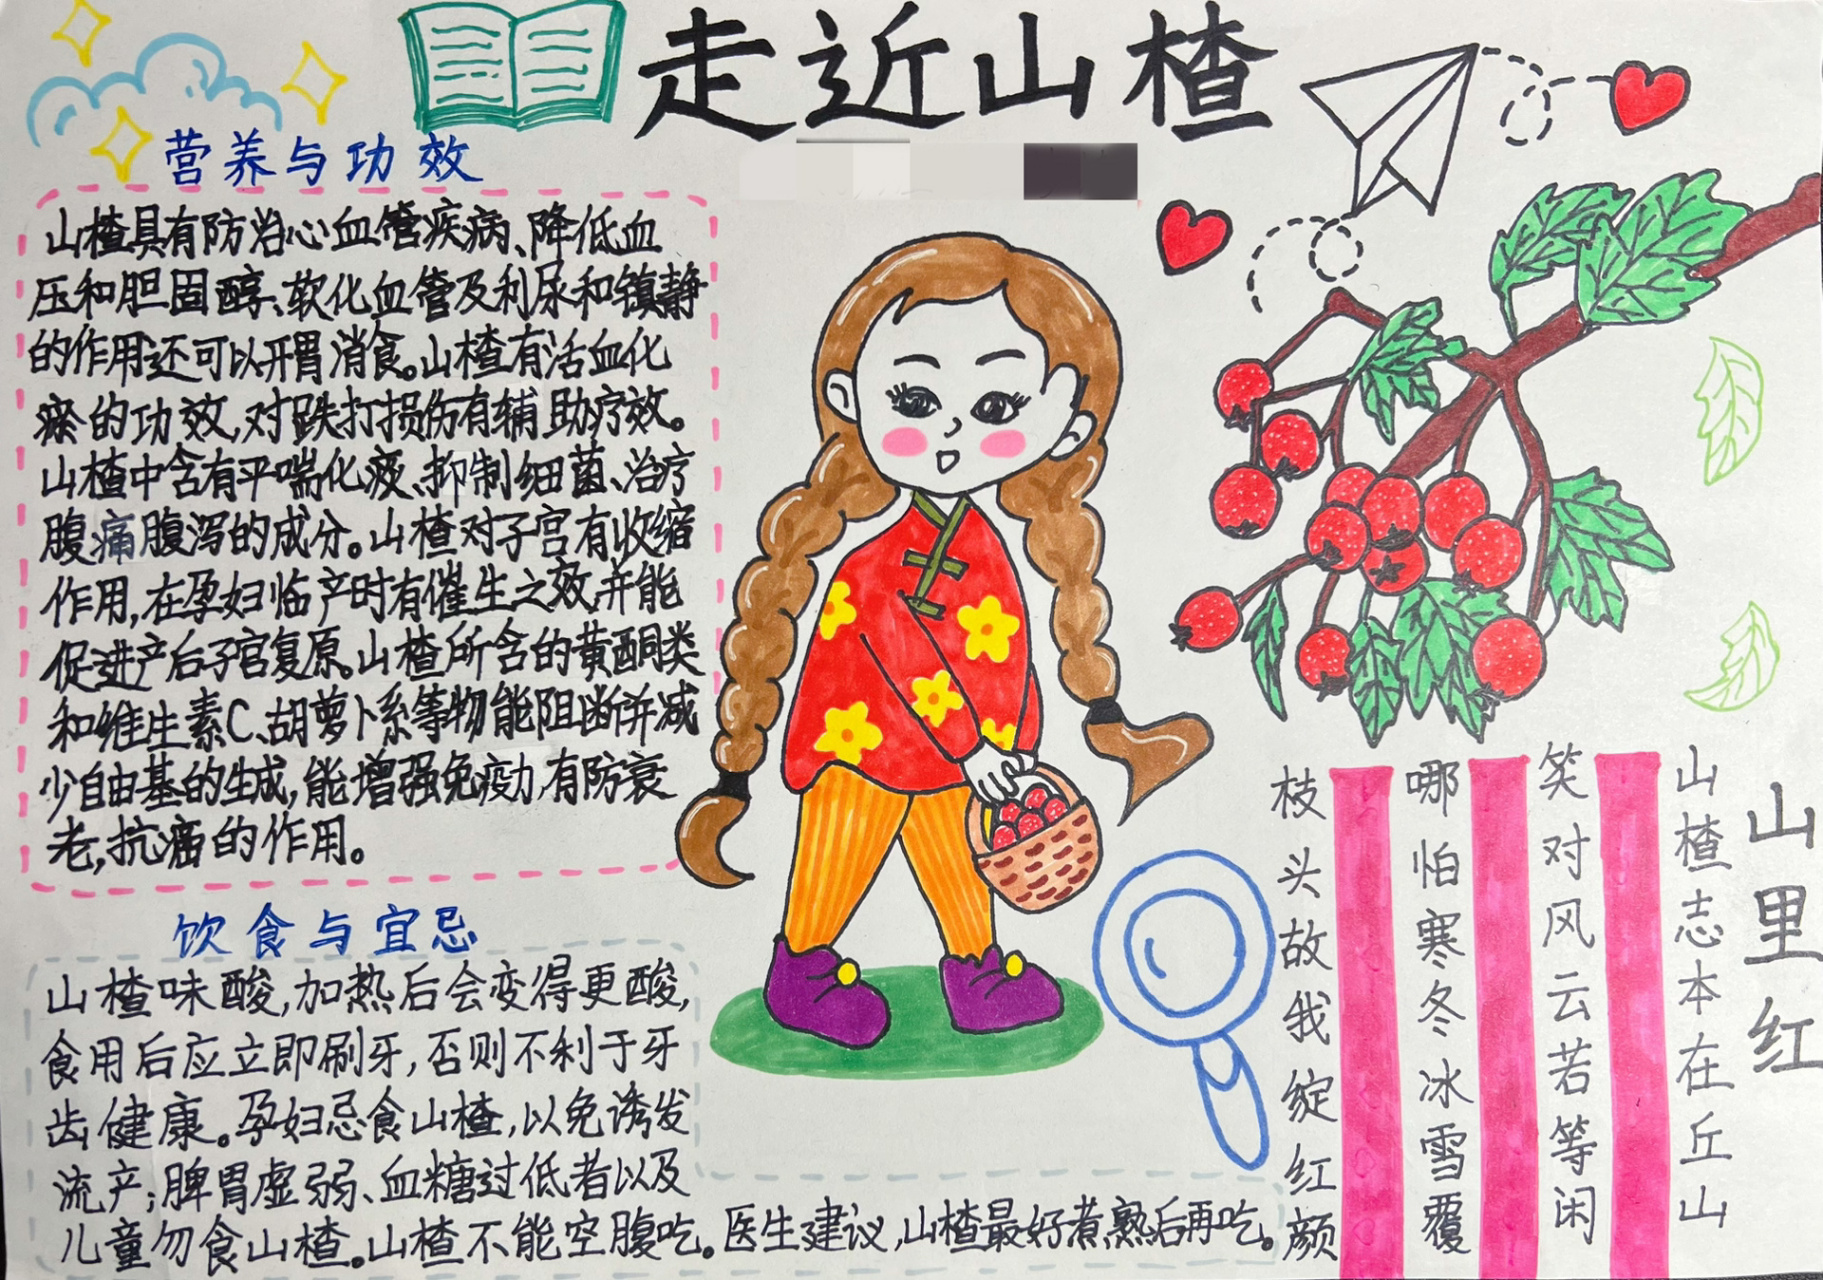 走近山楂
营养与功效
山楂具有防治心血管疾病、降低血
压和胆固醇、软化血管及利尿和镇静
的作用还可以开胃消食。山楂有活血化
瘀的功效,对跌打损伤有辅助疗效。
山楂中含有平喘化痰、抑制细菌、治疗
腹痛腹泻的成分。山楂对子宫有收缩
作用,在孕妇临产时有催生之效,并能
促进产后子宫复原。山楂所含的黄酮类
和维生素C、胡萝卜系等物能阻断并减
少自由基的生成,能增强免疫力,有防衰
老,抗癌的作用。
饮食与宜忌
山楂味酸,加热后会变得更酸,
食用后应立即刷牙,否则不利于牙
齿健康。孕妇忌食山楂,以免诱发
流产;脾胃虚弱、血糖过低者以及
儿童勿食山楂。山楂不能空腹吃。医生建议,山楂最好煮熟后再吃。
山里红
山楂志本在丘山
笑对风云若等闲
哪怕寒冬冰雪覆
枝头故我绽红颜